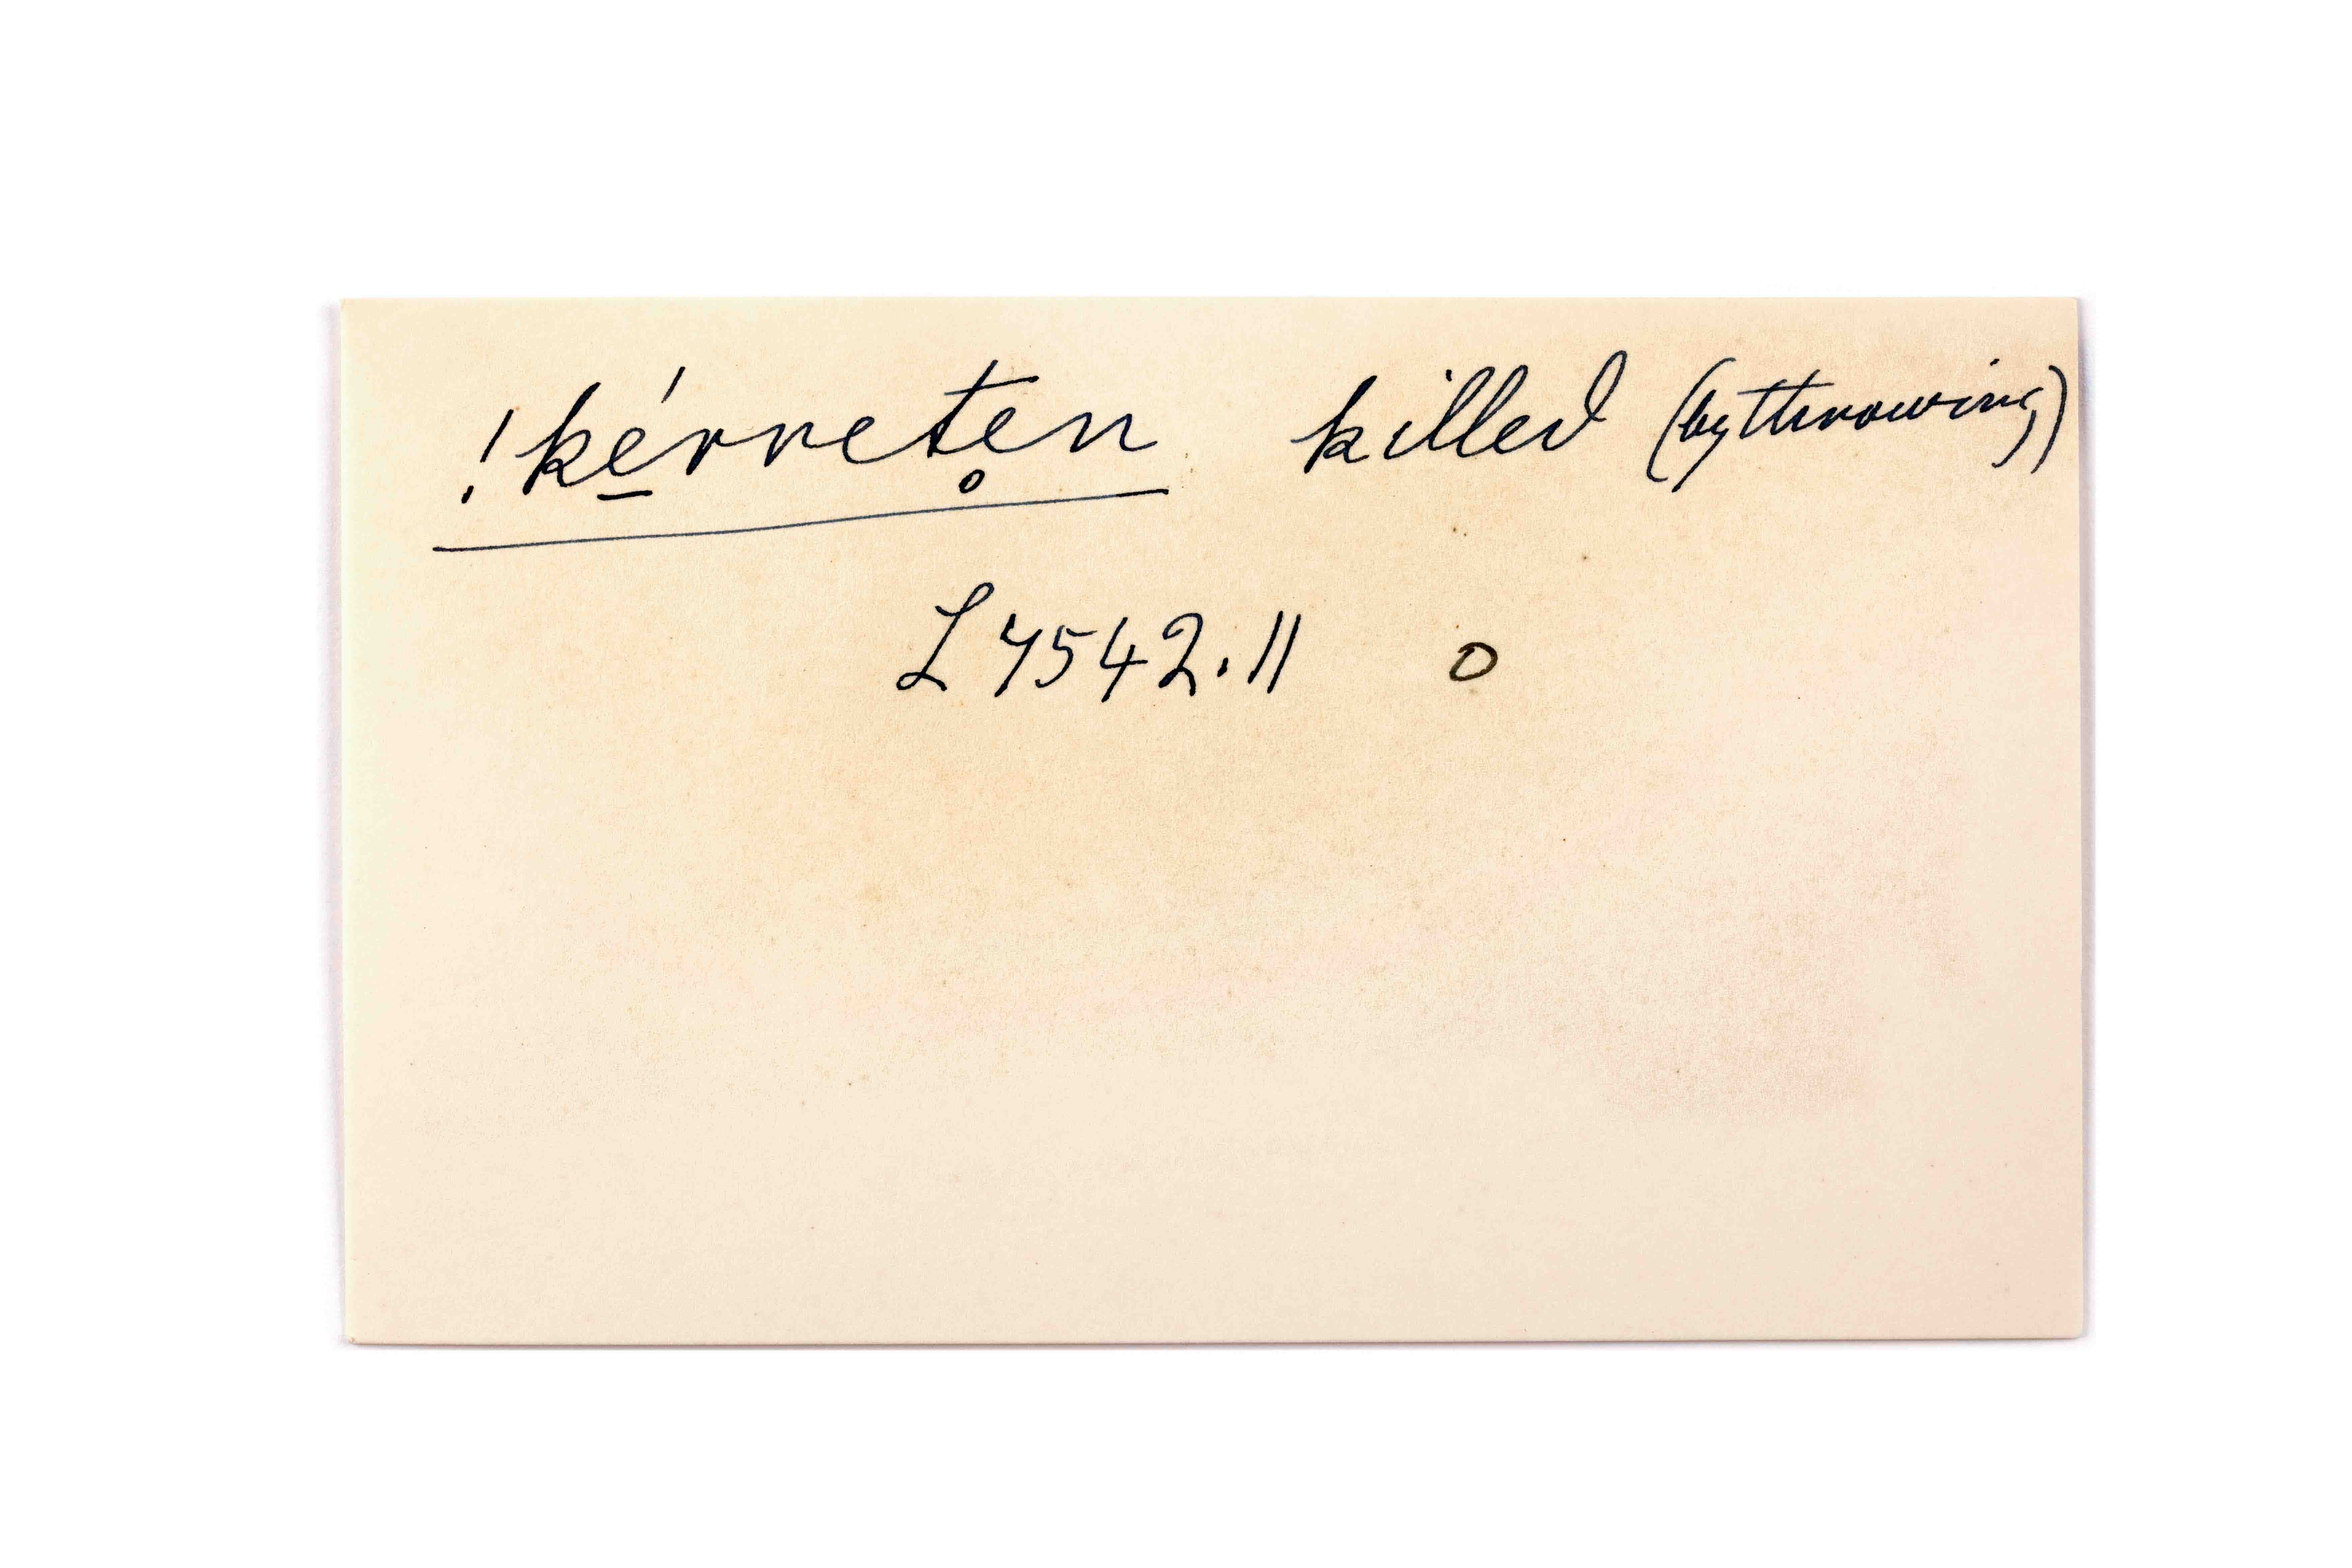 !ké̱rrete̥n killed (by throwing)
L 7542.11 o